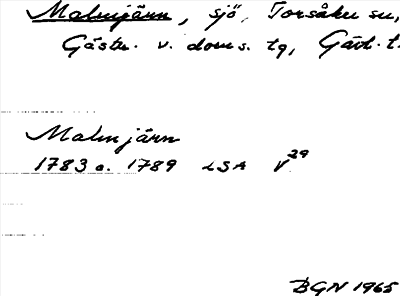 Malmjärn, sjö, Torsåker sn,
Gästr. v. doms. tg, Gävl. l.
Malmjärn
1783 o. 1789 LSA V 29
BGN 1965